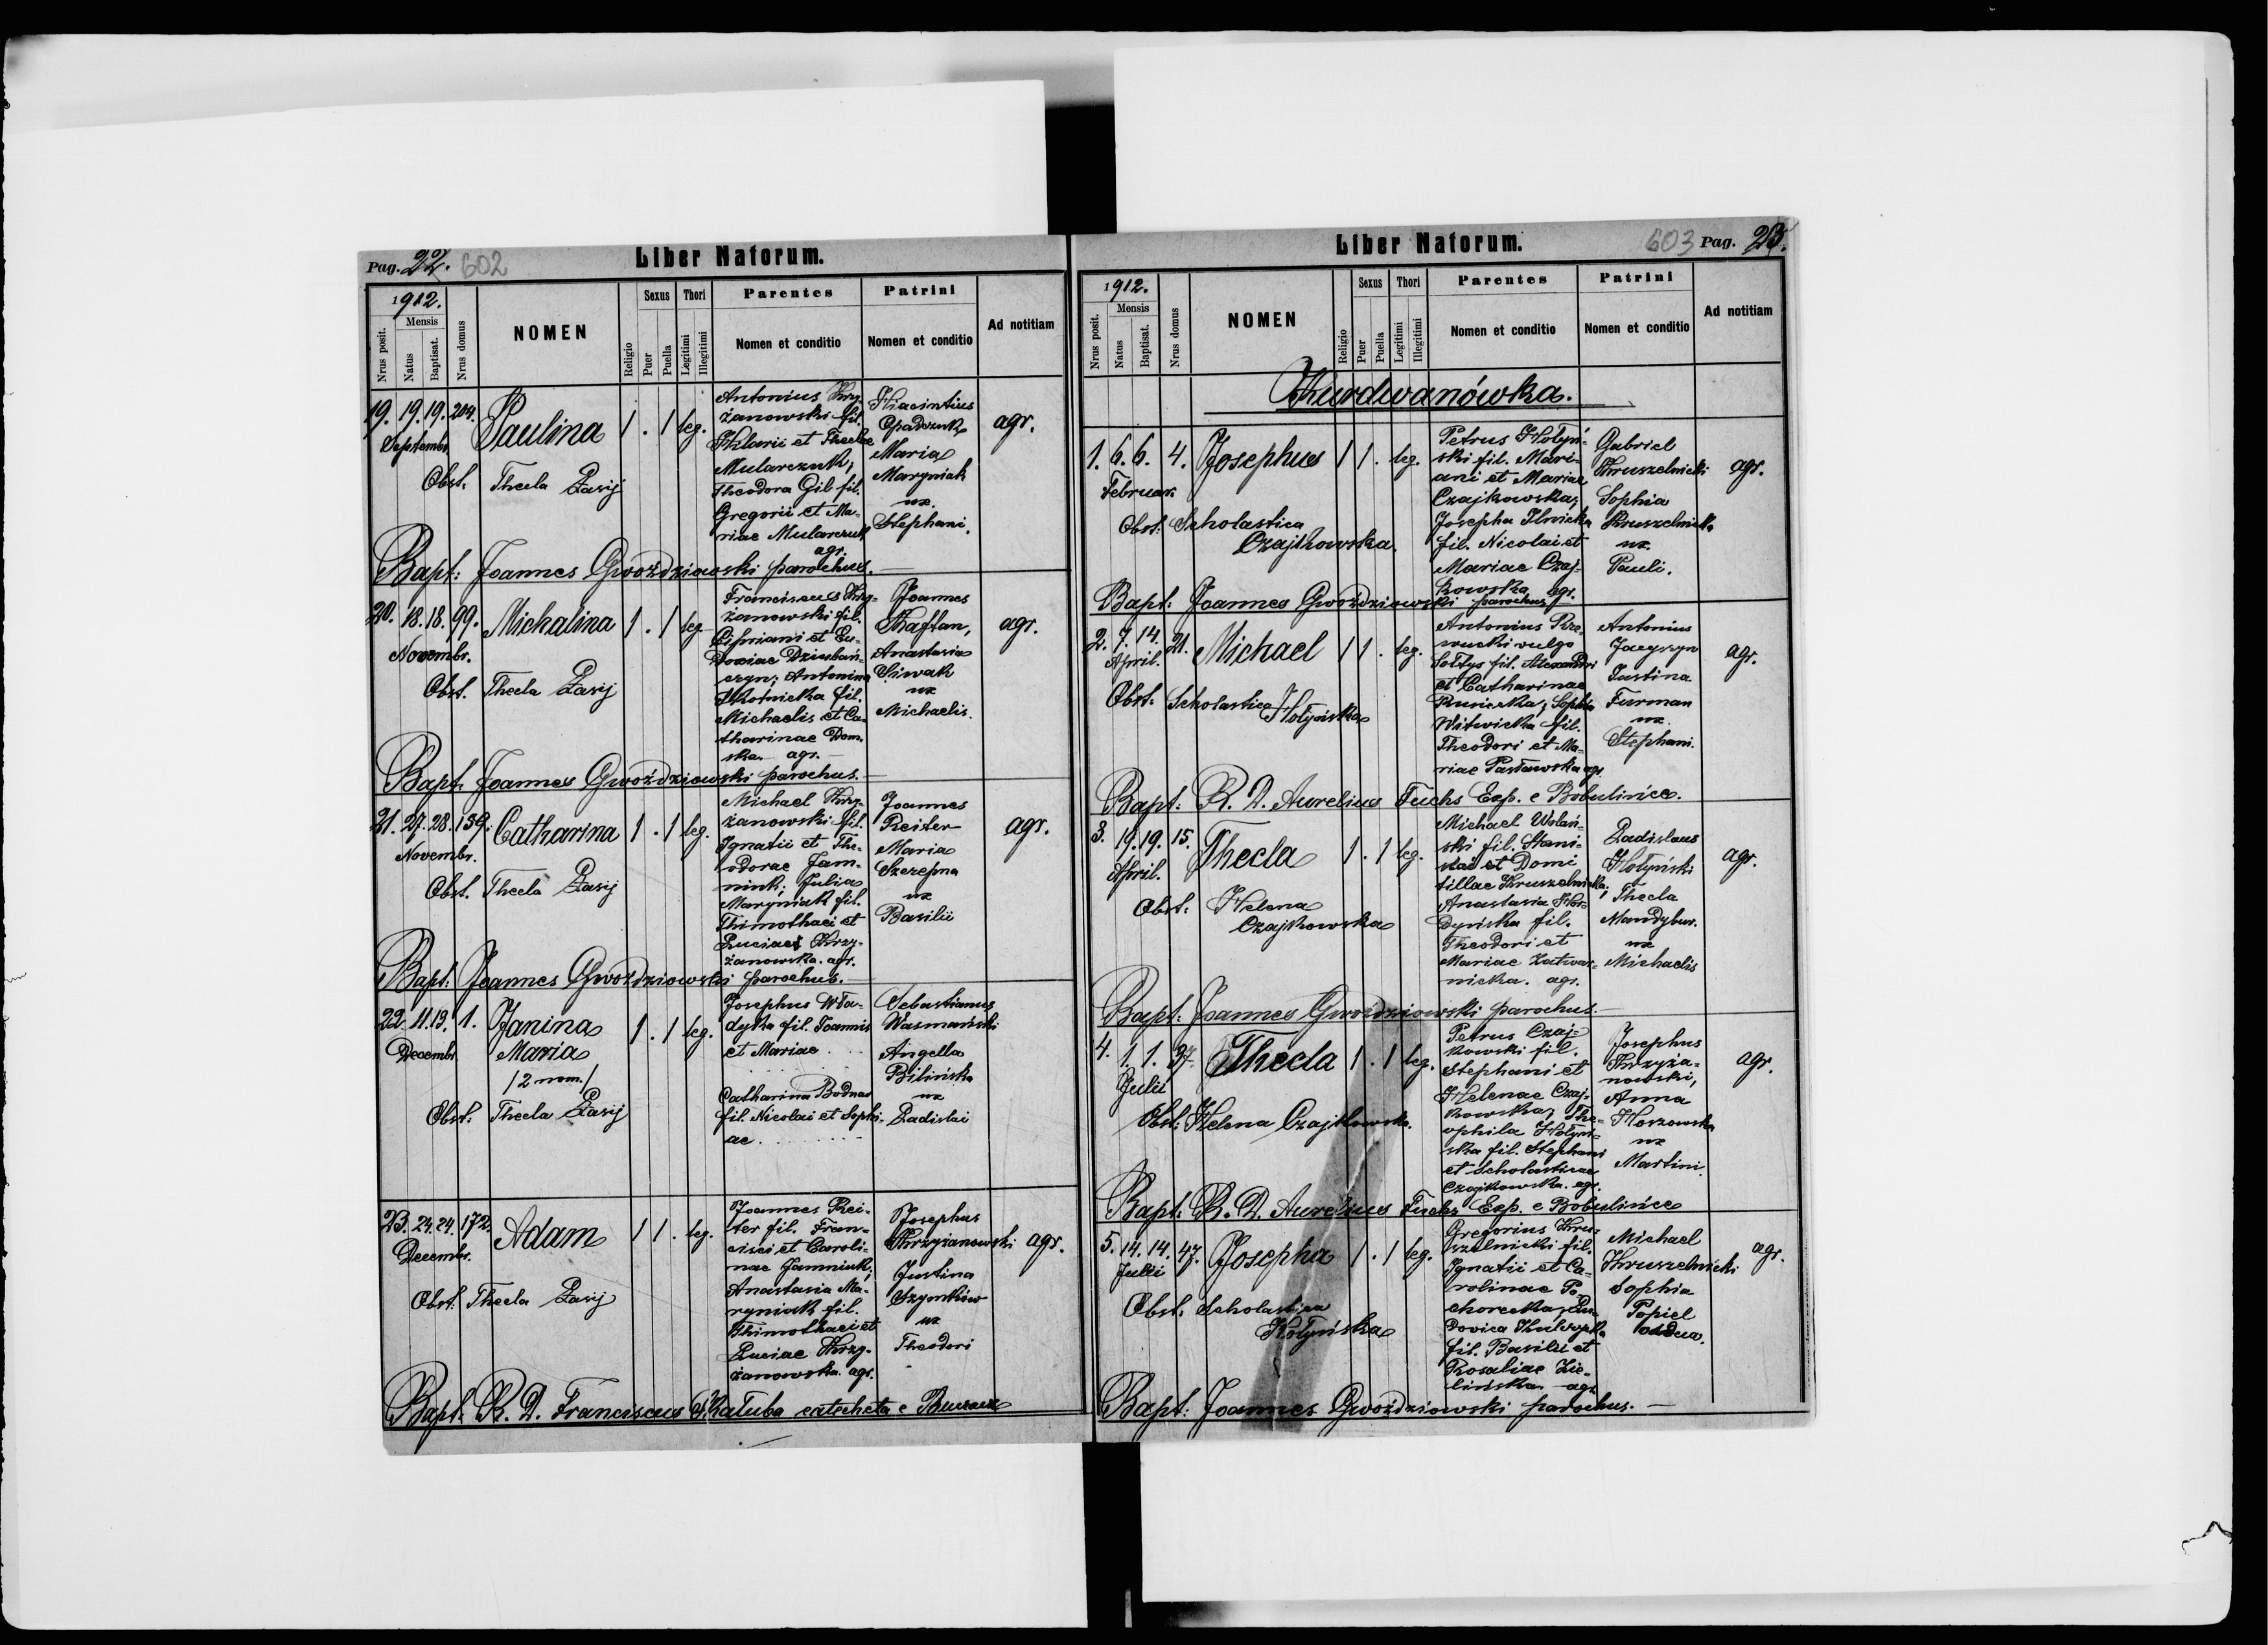 Pag. 22. 602 Liber Natorum.
1912.
Nrus posit.
Mensis
Natus
Baptisat.
Nrus domus
NOMEN
Religio
Sexus
Puer
Puella
Thori
Legitimi
Illegitimi
Parentes
Nomen et conditio
Patrini
Nomen et conditio
Ad notitiam
19. 19. 19. 204. Paulina 1 . 1 leg. agr.
Septembr.
Obst. Thecla Zasij
Antonius Krzy-
żanowski fil.
Hilarii et Theclae
Mularczuk;
Theodora Gil fil.
Gregorii et Ma-
riae Mularczuk
agr.
Hiacintius
Maria
Maryniak
ux.
Stephani.
Bapt: Joannes Gwoździowski parochus.
20. 18. 18. 99. Michalina 1 . 1 leg agr.
Novembr.
Obst. Thecla Zasij
Franciscus Krzy-
żanowski fil.
Cipriani et Eu-
doxiae Dziubań-
czyn; Antonina
Skotnicka fil.
Michaelis et Ca-
tharinae Dom-
ska. agr.
Joannes
Kaftan,
Anastasia
Siwak
ux
Michaelis.
Bapt. Joannes Gwoździowski parochus.
21. 27. 28. 159. Catharina 1 . 1 leg. agr.
Novembr.
Obst. Thecla Zasij
Michael Krzy-
żanowski fil.
Ignatii et The-
odorae Jam-
niuk; Julia
Maryniak fil.
Thimothaei et
Luciae Krzy-
żanowska. agr.
Joannes
Reiter
Maria
Szerepna
ux
Basilii
Bapt: Joannes Gwoździowski parochus.
22. 11. 13. 1. Janina 1 . 1 leg.
Decembr. Maria
/2 nom./
Obst. Thecla Zasij
Josephus Wła-
dyka fil. Joannis
et Mariae . . .
Catharina Bodnar
fil. Nicolai et Sophi-
ae . . . . . . .
Sebastianus
Wasmański
Angella
Bilińska
ux
Ladislai
23. 24. 24. 172. Adam 1 1 . leg. agr.
Decembr.
Obst. Thecla Zasij
Joannes Rei-
ter fil. Fran-
cisci et Caroli-
nae Jamniuk;
Anastasia Ma-
ryniak fil.
Thimothaei et
Luciae Krzy-
żanowska. agr.
Josephus
Krzyżanowski
Justina
Szymków
ux
Theodori
Bapt. R. D. Franciscus catecheta e Buczacz
Liber Natorum. 603 Pag. 23.
1912.
Nrus posit.
Mensis
Natus
Baptisat.
Nrus domus
NOMEN
Religio
Sexus
Puer
Puella
Thori
Legitimi
Illegitimi
Parentes
Nomen et conditio
Patrini
Nomen et conditio
Ad notitiam
Kurdwanówka.
1. 6. 6. 4. Josephus 1 1 . leg. agr.
Februar.
Obst: Scholastica
Czajkowska.
Petrus Hołyń-
ski fil. Mari-
ani et Mariae
Czajkowska;
Josepha Ilnicka
fil. Nicolai et
Mariae Czaj-
kowska agr.
Gabriel
Kruszelnicki
Sophia
Kruszelnicka
ux.
Pauli.
Bapt: Joannes Gwoździowski parochus
2. 7. 14. 21. Michael 1 1 . leg. agr.
April.
Obst: Scholastica Hołyńska
Antonius
vulgo
Sołtys fil. Alexandri
et Catharinae
Rusiecka; Sophia
Witwicka fil.
Theodori et Ma-
riae Pasławska agr.
Antonius
Jacyszyn
Justina
Furman
ux.
Stephani.
Bapt: R. D. Aurelius Fuchs Exp. e Bobulińce.
3. 19. 19. 15. Thecla 1 . 1 leg. agr.
April.
Obst: Helena
Czajkowska
Michael Wolań-
ski fil. Stani-
slai et Domi
tillae Kruszelnicka;
Anastasia Hor-
dyńska fil.
Theodori et
Mariae Zatwar-
nicka. agr.
Ladislaus
Hołyński
Thecla
Mandybur.
ux
Michaelis
Bapt: Joannes Gwoździowski parochus.
4. 1. 1. 37. Thecla 1 . 1 leg. agr.
Julii
Obst: Helena Czajkowska.
Petrus Czaj-
kowski fil.
Stephani et
Helenae Czaj-
kowska; The-
ophila Hołyń-
ska fil. Stephani
et Scholasticae
Czajkowska. agr.
Josephus
Krzyża-
nowski,
Anna
Hoszowska
ux
Martini.
Bapt: R. D. Aurelius Fuchs Exp. e Bobulińce
5. 14. 14. 47. Josepha 1 . 1 leg. agr.
Julii
Obst. Scholastica
Hołyńska
Gregorius Kru-
szelnicki fil.
Ignatii et Ca-
rolinae Po-
chorecka; Lu-
dovica
fil. Basilii et
Rosaliae Zie-
lińska agr.
Michael
Kruszelnicki
Sophia
Popiel
vidua.
Bapt: Joannes Gwoździowski parochus.